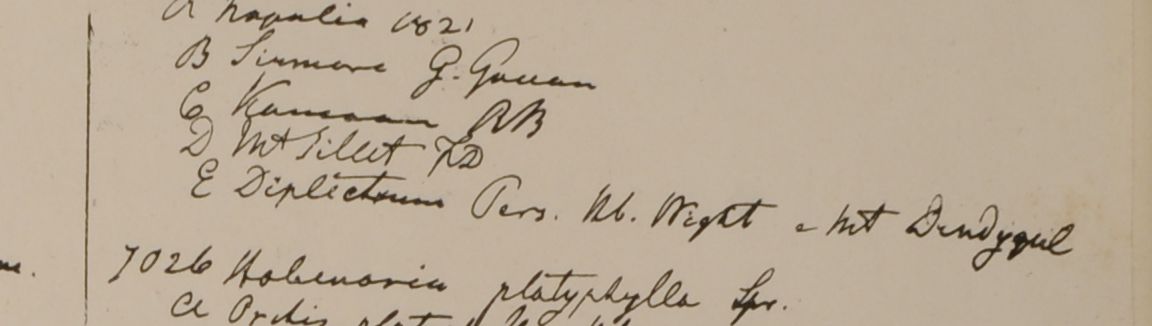 A Napalia 1821
B Sirmore G. Govan
C Kamaon RB
D Mt Sillet FD
E Diplectrum Pers. Hb. Wight e Mt Dindygul
7026 Habenaria platyphylla Spr.
a Orchis